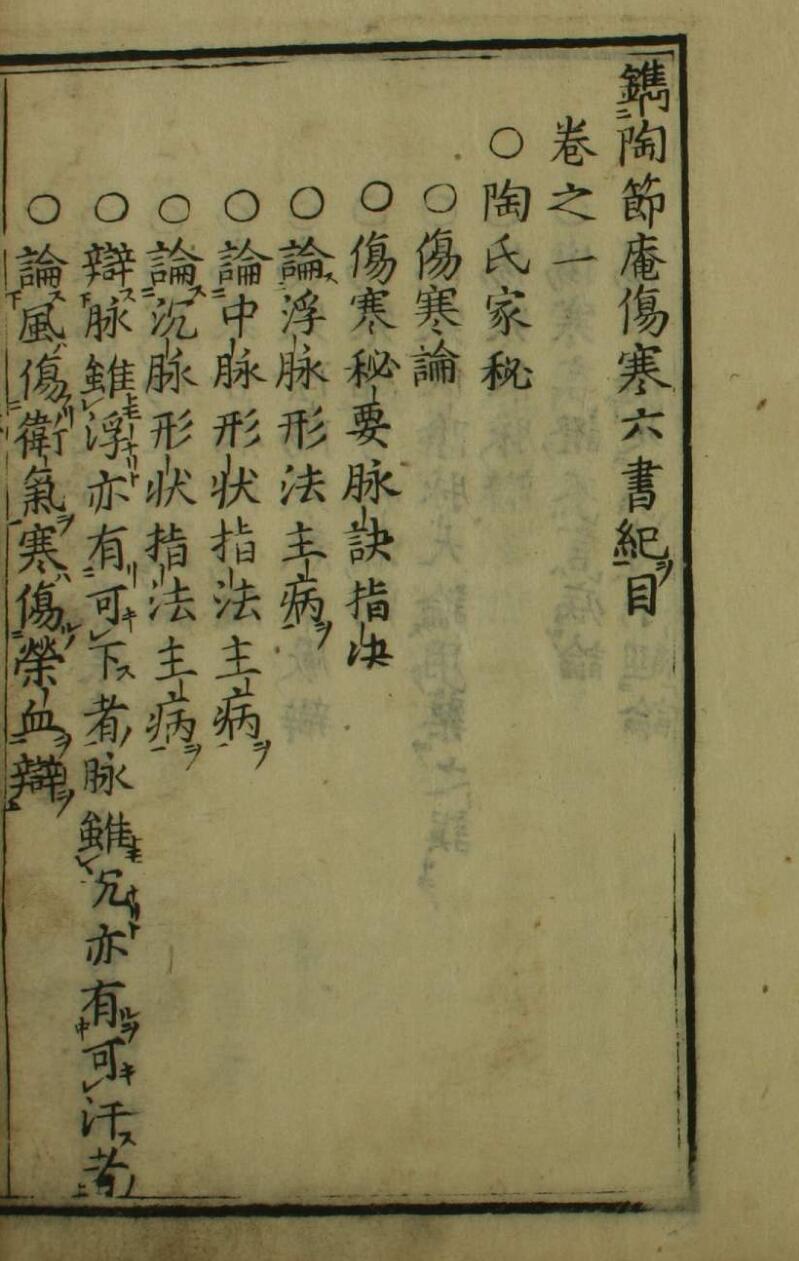 鐫陶節庵傷寒六書紀目
卷之一
○陶氏家秘
○傷寒論
○傷寒秘要脉訣指决
○論浮脉形法主病
○論中脉形状指法主病
○論沉脉形状指法主病
○辯脉雖浮亦有可下者脉雖沉亦有可汗者
○論風傷衛氣寒傷榮血辯